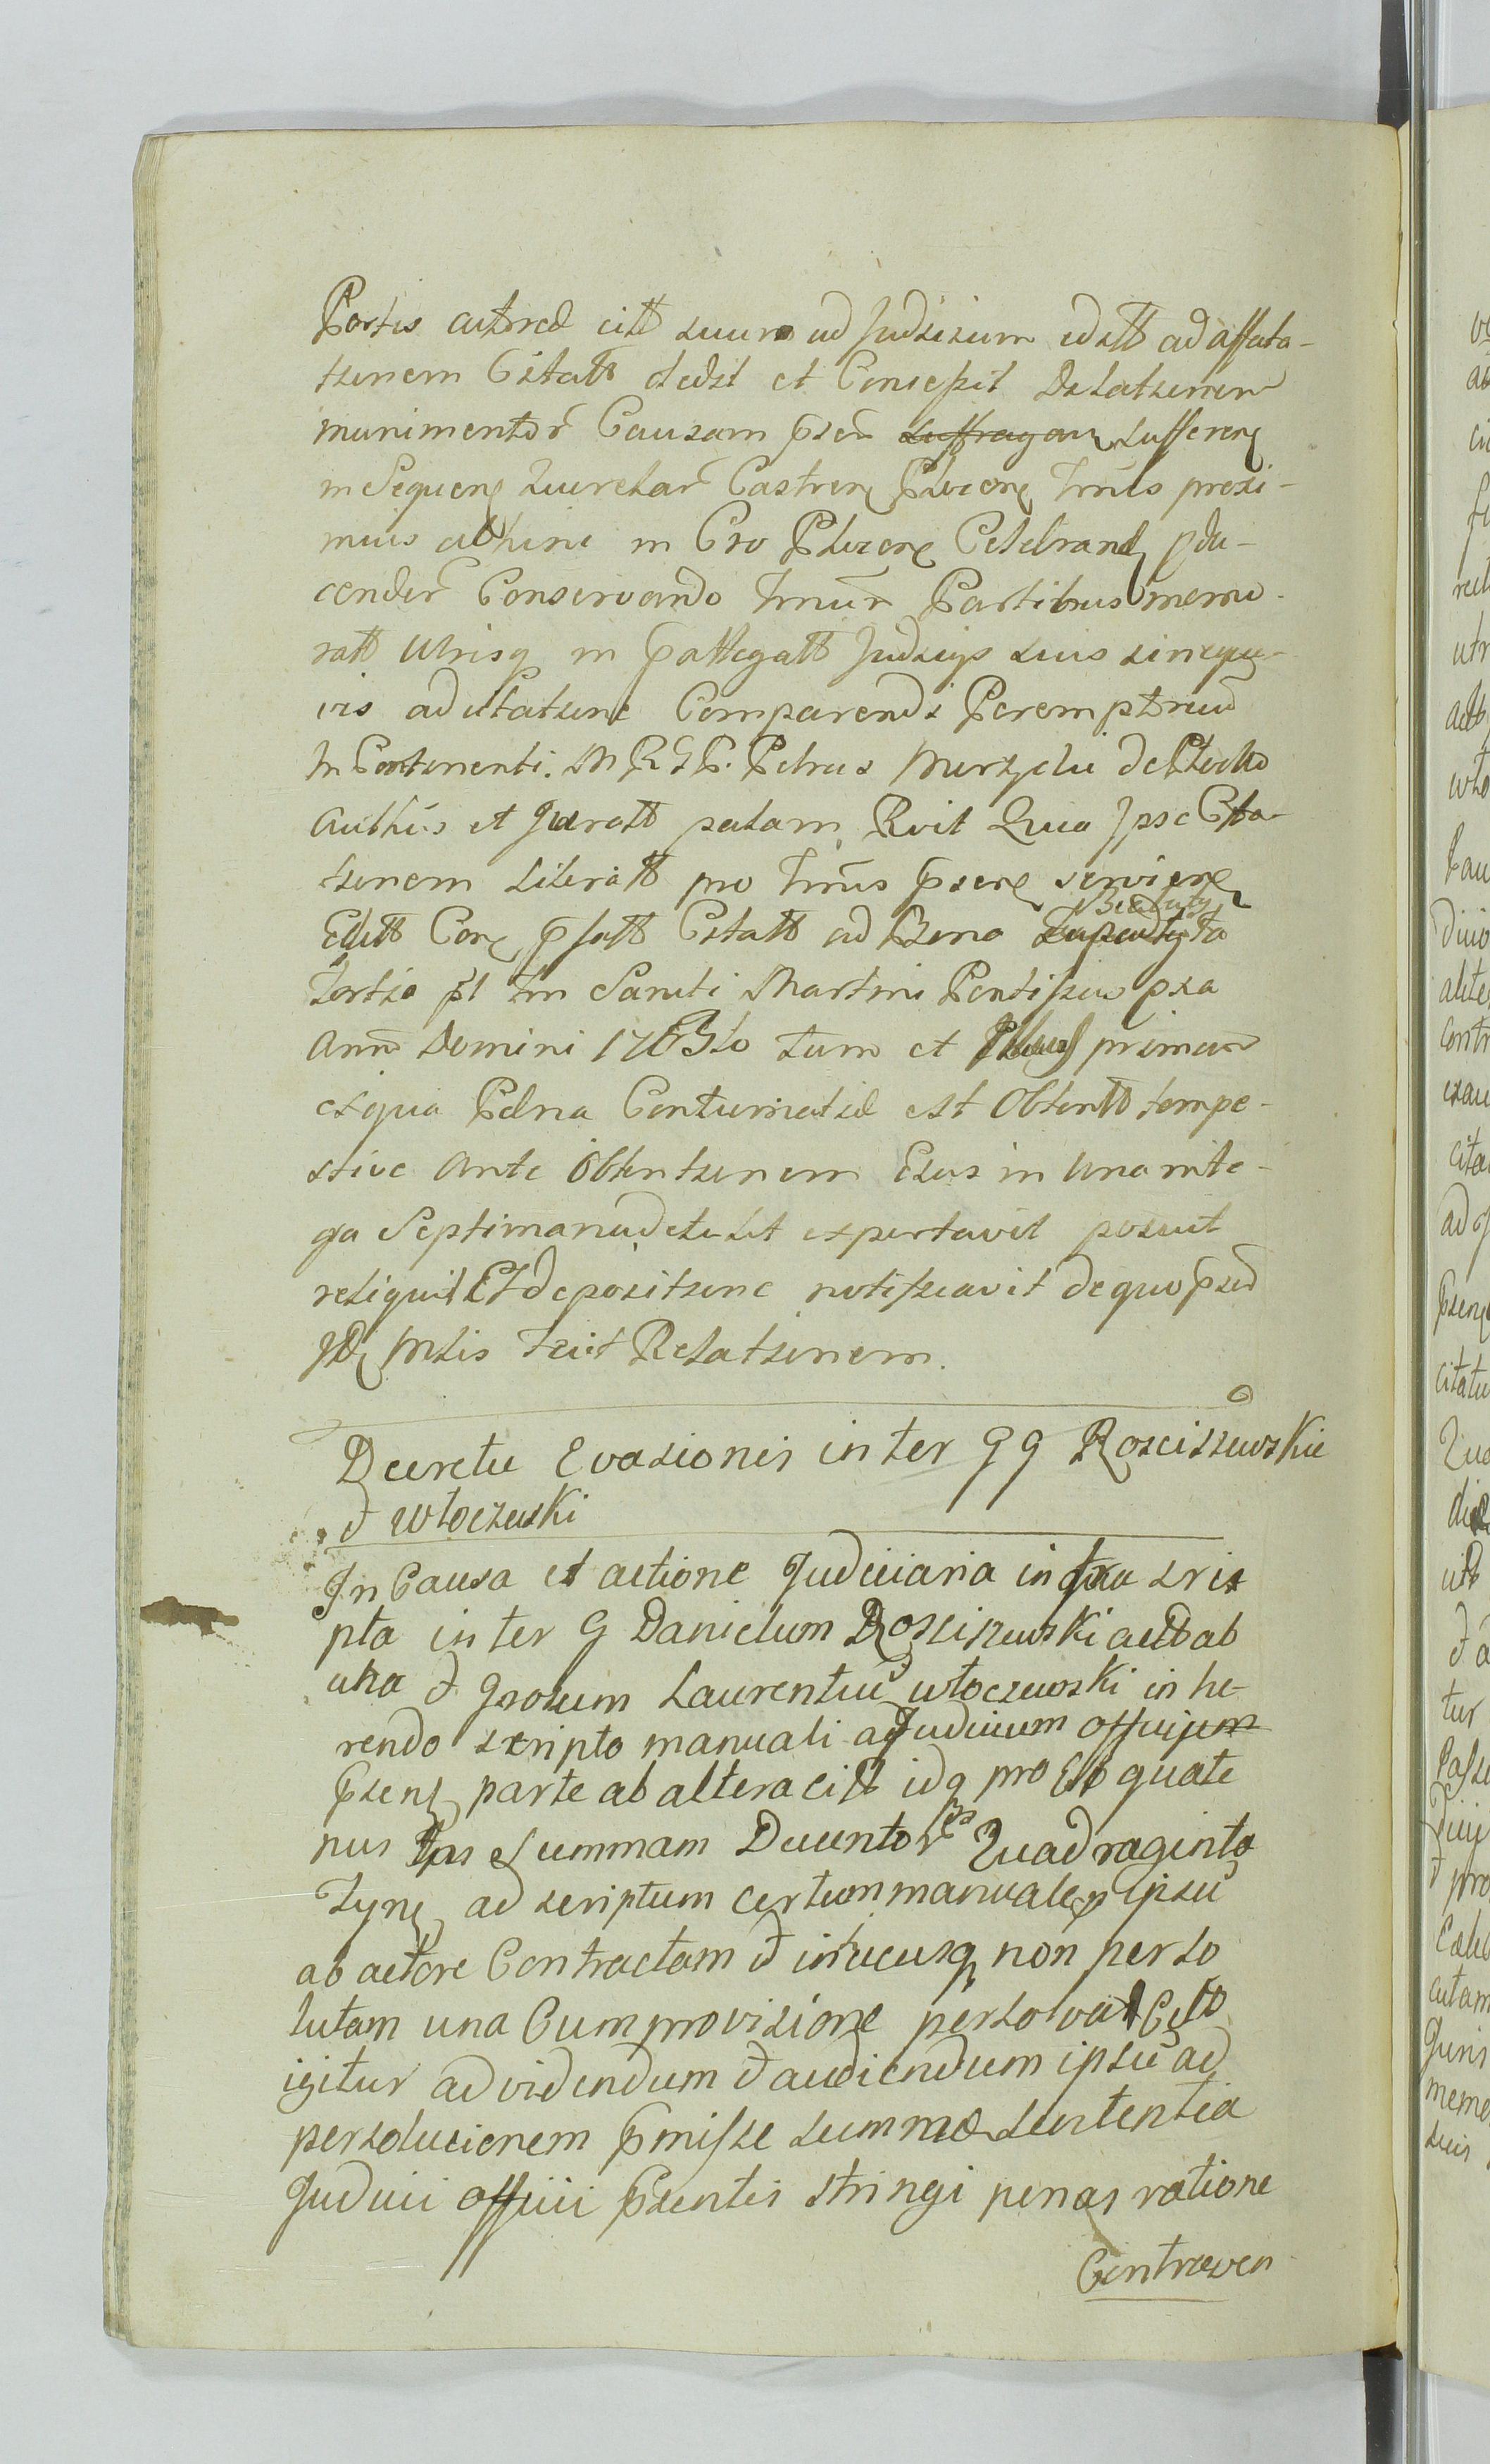 Partis citt suum ad Judicium ad affecta-
tionem Citatt dedit et Concessit Delationem
munimentor Causam psen suffragan sufferen
in Sequen querelar Castren Plocen Trnis proxi-
mius abhinc in Cro Plocen Celebrand pdu-
cendor Conservando Trnum Partibus memo-
ratt utrisq in pallegatt Judicijs suis sine quo-
vis adcitatione Comparendi Peremptrium
In Continenti. M R G P. Petrus de Plocko
Authus et Juratt palam Rvit Quia Ipse Cita-
tionem Literatt pro Trnis psen servien
Editt Con psatt Citatt ad Bona
Tertia pt tm Sancti Martini Pontificis pxa
Ann Domini 1763tio tum et primum
ex qua Pdna Contumatia est Obtentt tempe-
stive Ante Obtentionem Eius in Una inte-
gra Septimana detulit exportavit posuit
reliquit Et depositione notificavit de quo psed
JD Mlis fecit Relationem.
Decretu Evasionis inter G G Roscissewskie
& Włoczewski
In Causa et actione Judiciaria infra scri
pta inter G Danielum Roscissewski actt ab
una & Grosum Laurentiu Włoczewski in he-
rendo scripto manuali ad Judicium officijum
psens parte ab altera citt idq pro Eo quate
nus Ipse Summam Ducentor Quadraginta
Tynf ad scriptum certum manuale p ipsu
ab actore Contractam & inhucusq non perso
lutam una Cum provisione persolvat Citt
igitur ad videndum & audiendum ipsu ad
persolucionem pmisse summæ sententia
Judicii officii psentis stringi penas ratione
Contraven